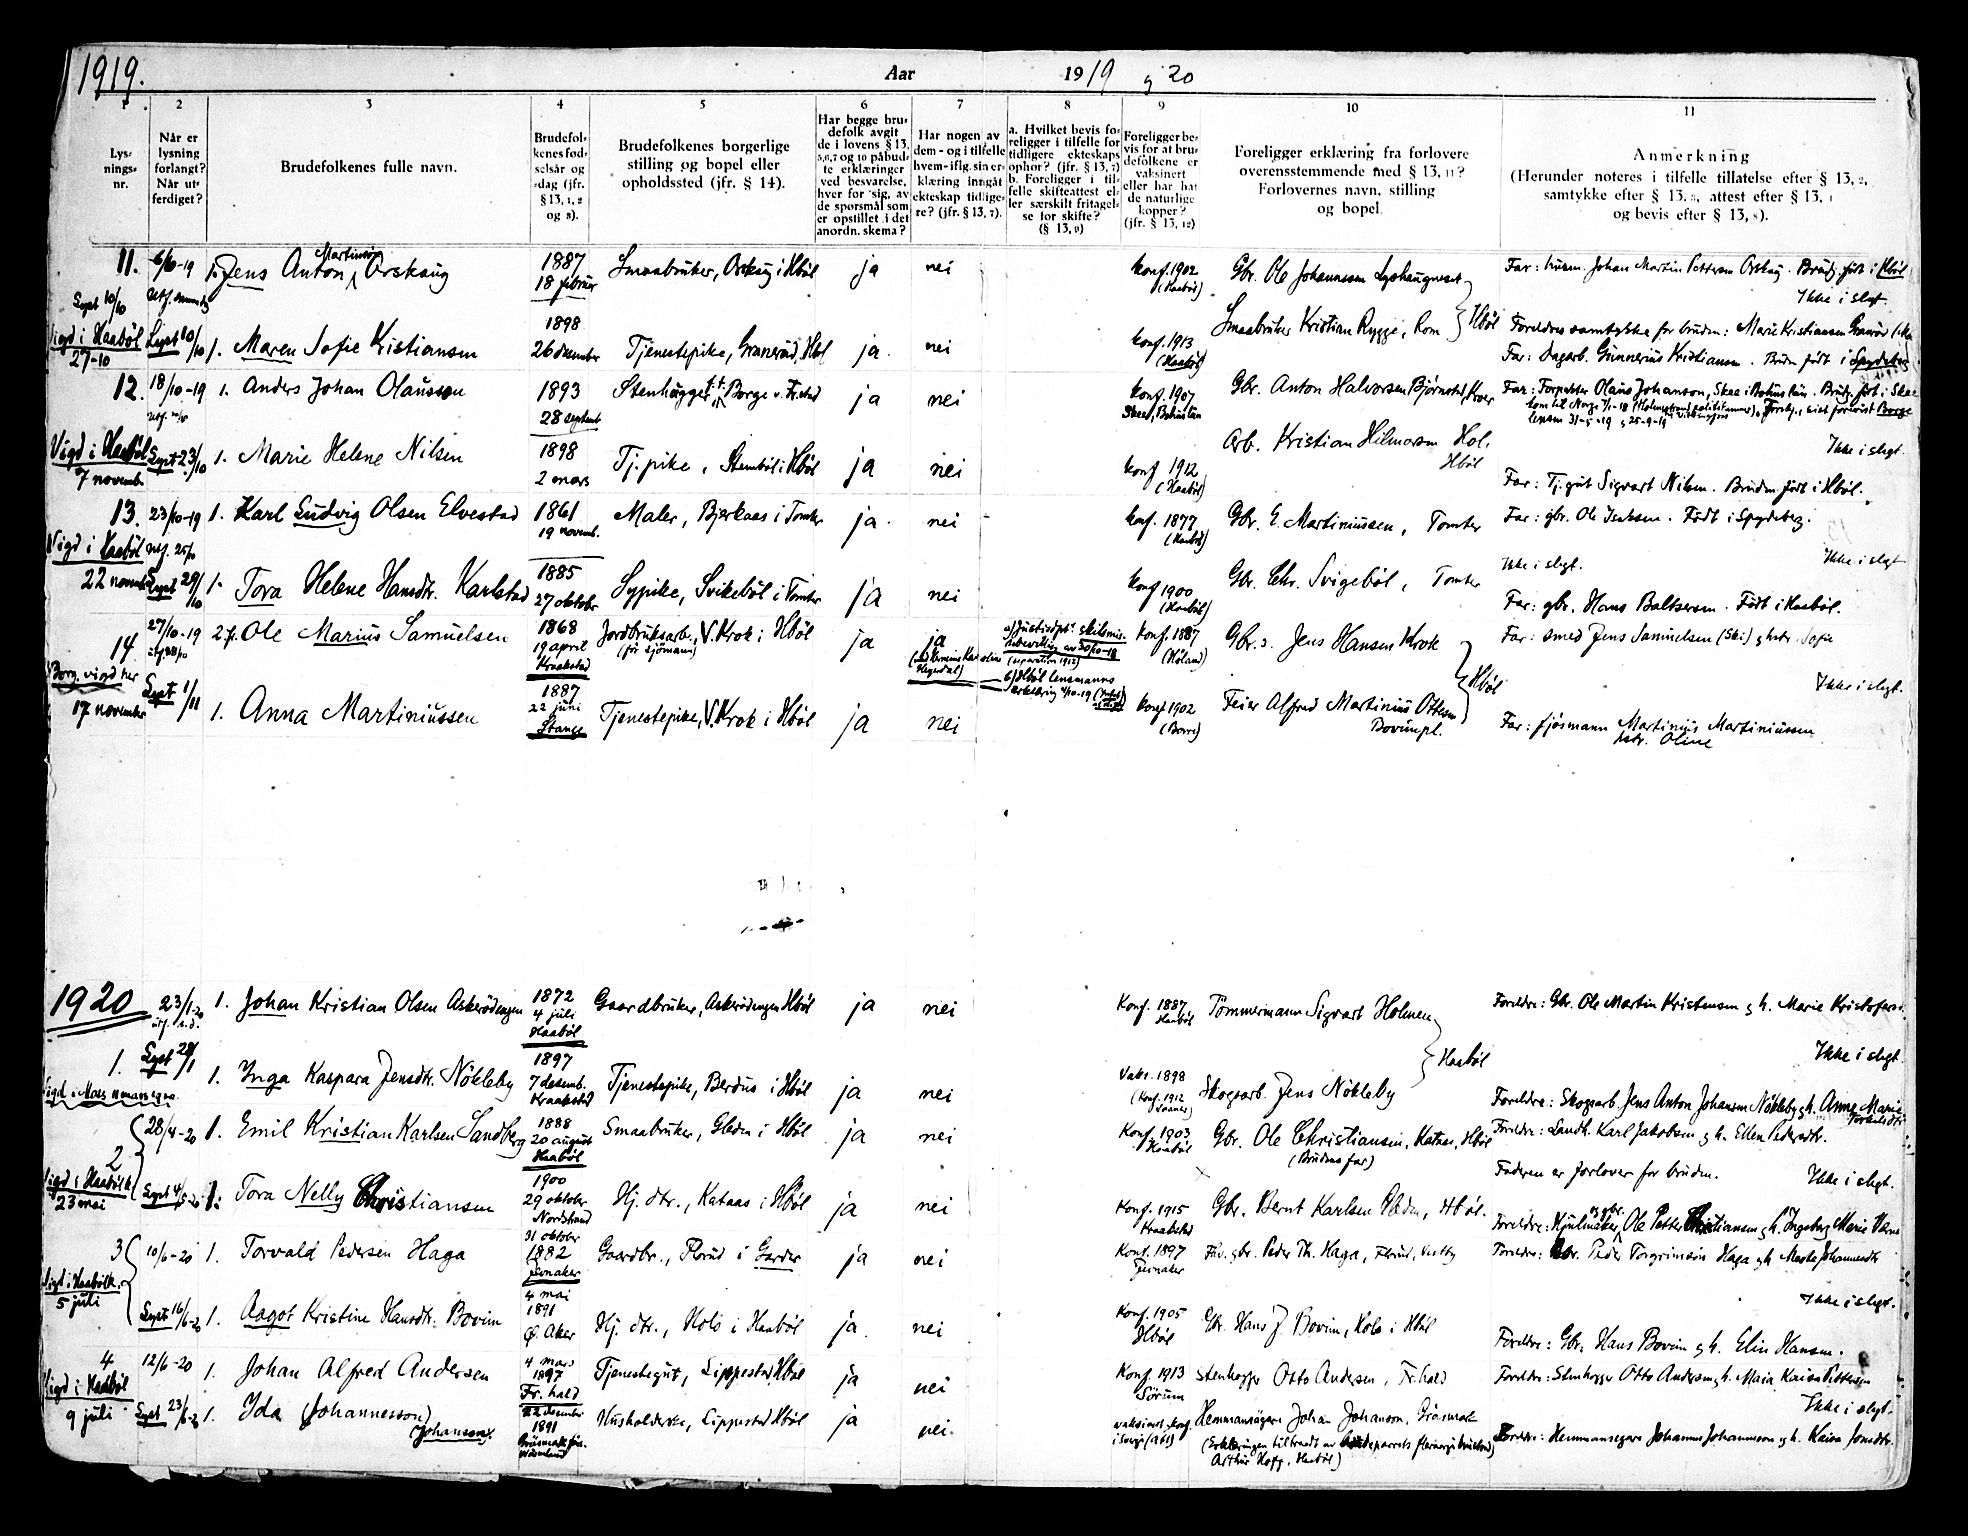 1919.
Aar
1919 og 20
1 2 3 4 5 6 7 8 9 10 11
Lys-
nings-
nr.
Når er
lysning
forlangt?
Når ut-
ferdiget?
Brudefolkenes fulle navn.
Brudefol-
kenes fød-
selsår og
-dag (jfr.
§ 13, 1, 2
og 8).
Brudefolkenes borgerlige
stilling og bopel eller
opholdssted (jfr. § 14).
Har begge bru-
defolk avgit
de i lovens § 13,
5,6,7 og 10 påbud-
te erklæringer
ved besvarelse,
hver for sig, av
de spørsmål som
er opstillet i det
anordn. skema?
Har nogen av
dem - og i tilfelle
hvem - iflg. sin er-
klæring inngåt
ekteskap tidlige-
re? (jfr. § 13, 7).
a. Hvilket bevis fo-
religger i tilfelle for
tidligere ekteskaps
ophør? (jfr. § 13, 7)
b. Foreligger i til-
felle skifteattest el-
ler særskilt fritagel-
se for skifte?
(§ 13, 9)
Foreligger be-
vis for at bru-
defolkene er
vaksinert
eller har hat
de naturlige
kopper?
(jfr. § 13, 12)
Foreligger erklæring fra forlovere
overensstemmende med § 13, 11?
Forlovernes navn, stilling
og bopel.
Anmerkning
(Herunder noteres i tilfelle tillatelse efter § 13, 2,
samtykke efter § 13, 3, attest efter § 13, 4
og bevis efter § 13, 8).
11. 6/10-19 1. Jens Anton Martinsen Orskaug 1887 Smaabruker, Orskaug i Hbøl ja nei Konf. 1902 Gbr. Ole Johannessen
18 februar (Haabøl)
Far: husm. Johan Martin Pettersen Orskaug. Brudg. født i Hbøl
Ikke i slegt.
Lyst 10/10
Vigd i Haabøl
27-10
Lyst 10/10 1. Maren Sofie Kristiansen 1898 Tjenestepike, Granerud, Hbøl ja. nei Konf. 1913 Smaabruker Kristian Rygge, Rom Hbøl
26 desember (Haabøl)
Forældres samtykke for bruden: Marie Kristiansen
Far: Dagarb. Gunnerius Kristiansen. Bruden født i Spydeberg
12. 18/10-19 1. Anders Johan Olausson 1893 Stenhugger, Borge v. Fr.stad ja nei Konf. 1907 Gbr. Anton Halvorsen Bjørnstad, Kroer
28 septembr Skee, Bohuslän
Far: Torparen Olaus Johanson, Skee i Bohuslän. Brudg. født i Skee
Ikke i slegt.
Vigd i Haabøl
7 novembr
Lyst 23/10 1. Marie Helene Nilsen 1898 Tj.pike, Stenbøl i Hbøl ja nei Konf 1912 Arb. Kristian Hilmarsen Hol, Hbøl
2 mars (Haabøl)
Far: Tj.gut Sigvart Nilsen. Bruden født i Hbøl.
13. 23/10-19 1. Karl Ludvig Olsen Elvestad 1861 Maler, Bjerkaas i Tomter ja. nei Konf. 1877 Gbr. E. Martiniussen, Tomter Far: gbr. Ole Isaksen. Født i Spydeberg.
19 novemb. (Haabøl)
Ikke i slegt. Ikke i slegt
Vigd i Haabøl utf. 25/10
22 novembr Lyst 29/10 1. Tora Helene Hansdtr. Karlstad 1885 Sypike, Svikebøl i Tomter ja nei Konf 1900 Gbr. Chr. Svigebøl, Tomter
27 oktobr (Haabøl)
Far: gbr. Hans Baltsersen. Født i Haabøl.
14 27/10-19 2. f. Ole Marius Samuelsen 1868 Jordbruksarb., V. Krok i Hbøl ja ja Konf. 1887 Gbr.s. Jens Hansen Krok Far: smed Jens Samuelsen (Ski) og hstr. Sofie
19 april (før sjømann)
Kraakstad
a) Justisdpt. skilsmis-
sebevilling av 30/10-19
(separation 1912)
b) Hbøl lensmanns
erklæring
(Høland)
Ikke i slegt.
Borg. vigd her
17 november
Lyst 1/11 1. Anna Martiniussen 1887 Tjenestepike, V. Krok i Hbøl ja nei Konf 1902 Feier Alfred Martinius Ottesen Hbøl
22 juni (Borre) Bovimpl.
Stange
Far: fjøsmann Martinius Martiniussen
hstr. Oline
1920 23/1-20 1. Johan Kristian Olsen Askerødengen 1872 Gaardbruker, Askerødengen Hbøl ja nei Konf. 1887 Tømmermann Sigvart Holmen Foreldre: Gbr. Ole Martin Kristensen og h. Marie Kristofersd.
utf. s.d. 4 juli Haabøl
Haabøl
Ikke i slegt.
1. Lyst 28/1 1. Inga Kaspara Jensdtr. Nökleby 1897 Tjenestepike, Berdus i Hbøl ja nei Vaks. 1898 Skogsarb. Jens Nökleby Haabøl
7 desemb. (Konf. 1912
Kraakstad
Vigd i Moss 11 mars 1920.
Foreldre: Skogsarb. Jens Anton Johansen Nökleby og h. Anne Marie Torkildsdtr
2 28/4-20 1. Emil Kristian Karlsen Sandberg 1888 Smaabruker, Gleden i Hbøl ja nei Konf. 1903 Gbr. Ole Christiansen, Kataas, Hbøl Foreldre: Landh. Karl Jakobsen og h. Ellen Pedersdtr.
20 august Haabøl (Brudens far)
Haabøl
Faderen er forlover for bruden.
Ikke i slegt.
Vigd i Haabøl k.
23 mai
Lyst 4/5-20 1. Tora Nelly Christiansen 1900 Hj. dtr., Kataas i Hbøl ja nei Konf. 1915 Gbr. Bernt Karlsen Gleden, Hbøl.
29 oktobr Kraakstad
Nordstrand
Foreldre: Hjulmaker og gbr. Ole Petter Christiansen og h. Ingeborg Marie
3 10/6-20 1. Torvald Pedersen Haga 31 oktobr 1882 Gaardbr., Florud i Garder ja nei Konf. 1897 Fhv. gbr. Peder Th. Haga, Florud, Vestby Foreldre: Gbr. Peder Torgrimsen Haga og h. Marte Johannesdtr
Jevnaker Jevnaker
Ikke i slegt.
Vigd i Haabøl k.
5 juli
Lyst 16/6-20 1. Aagot Kristine Hansdtr. Bovim 4 mai 1891 Hj. dtr., Holo i Haabøl ja. nei Konf. 1905 Gbr. Hans J. Bovim, Holo i Hbøl
Ø. Aker Hbøl
Foreldre: Gbr. Hans Bovim og h. Elin Hansen.
4 12/6-20 1. Johan Alfred Andersen 4 mars 1897 Tjenestegut, Lippestad, Hbøl ja nei Konf. 1913 Stenhogger Otto Andersen, Fr.hald Foreldre: Stenhogger Otto Andersen og h. Maia Kaisa Pettersen
Fr. hald Sørum
Ikke i slegt.
Vigd i Haabøl
9 juli
Lyst 23/6-20 1. Ida (Johannesson) 22 desember 1891 Husholderske, Lippestad Hbøl ja nei. vaksinert, konf. i Sverige (Att) Hemmansägare Johan Johanson, Gräsmark
(Johanson).
Gräsmark fors.
Wärmland
Arthur Hogg, Haabøl)
Foreldre: Hemmansegare Johannes Johannesson og h. Kaisa Jonsdtr.